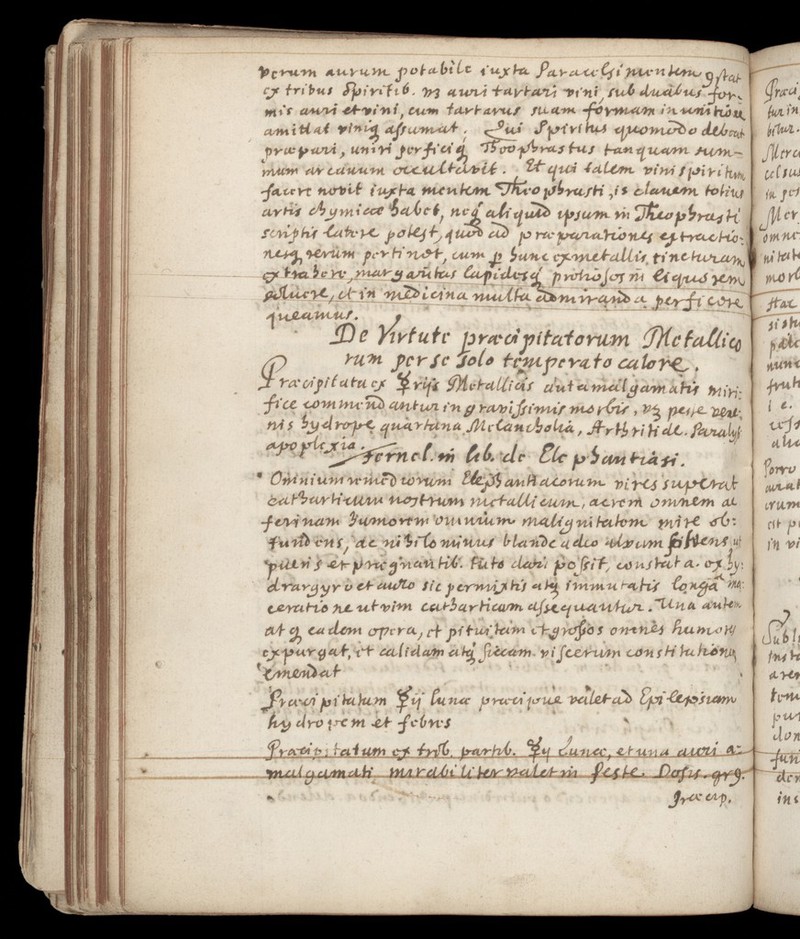 verum aurum potabile iuxta Paracelsi mentem ꝯstat
ex tribus Spiritib. vz auri tartari vini sub duabus for-
mis auri et vini, cum tartarus suam formam in unitione
amittat viniq assumat. Qui Spiritus quomodo debeat
præpari, uniri perficiq Theophrastus tanquam sum-
mum arcanum occultavit. Et qui talem vini spiritum
facere novit iuxta mentem Theophrasti, is clavem totius
artis chymicæ habet, neq aliquid ipsum in Theophrasti
scriptis latere potest, quod ad præparationes extractio-
nesq rerum pertinet, cum ꝑ hunc ex metallis tincturam
extrahere, margaritas lapidesq pretiosos in liquorem
soluere, et in medicina multa admiranda perficere
queamus.
De Virtute præcipitatorum Metallico
rum per se solo temperato calore.
Præcipitata ex ☿rijs Metallicis aut amalgamatis miri-
fice commendantur in gravissimis morbis, vz peste vene-
nis hydrope quartana Melancholia, Arthritide. Paralys
apoplexia.
Fernel. in lib. de Elephantiasi.
Omnium remediorum Elephantiacorum vires superat
catharticum nostrum metallicum, acrem omnem ac
ferinam humorem omnium malignitatem mire ob-
tundens, ac nihilominus blande adeo alvum ut
pueris et prægnantib. tuto dari possit, constat a. ex hy-
drargyro et auro sic permixtis atq immutatis longa ma-
ceratione ut vim catharticam assequantur. Una autem
atq eadem opera, et pituitam et grossos omnes humores
expurgat, et calidam atq siccam viscerum constitutionem
emendat
Præcipitatum ☿ij lunæ præcipue valet ad Epilepsiam
hydropem et febres
Præcipitatum ex trib. partib. ☿ij Lunæ, et una auri a-
malgamati mirabiliter valet in peste. Dosis. gr 9.
Præcip.